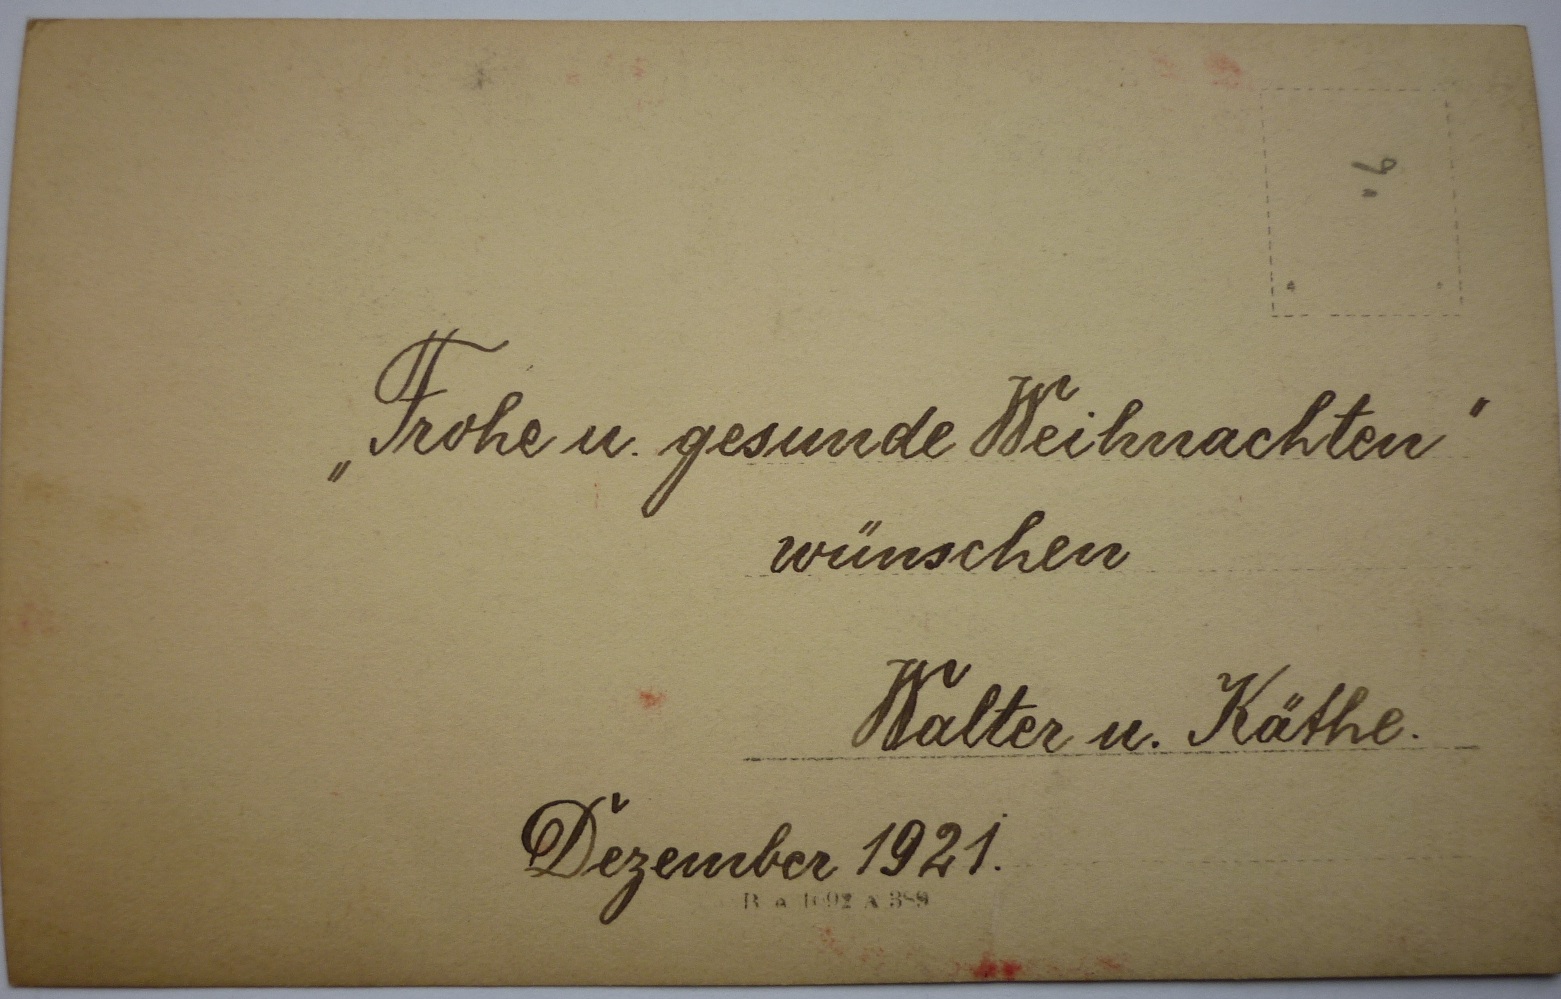 „Frohe u. gesunde Weihnachten"
wünschen
Walter u. Käthe.
Dezember 1921.